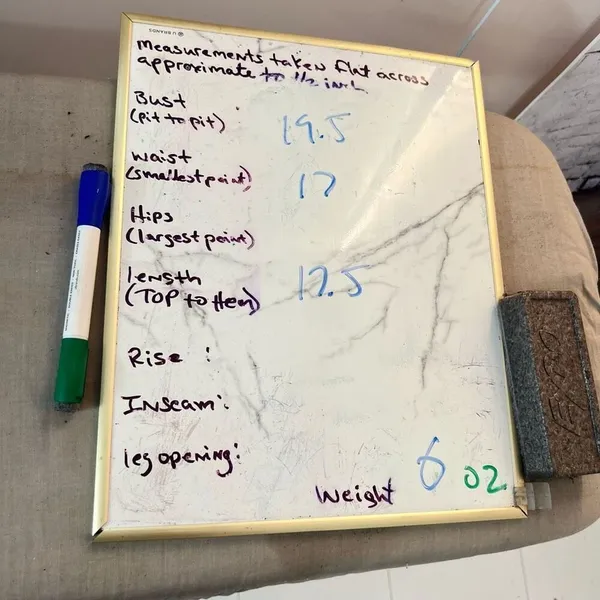 U BRANDS
Measurements taken flat across
approximate to 1/2 inch
Bust
(pit to pit) 19.5
waist
(smallest point) 17
Hips
(largest point)
length
(TOP to Hem) 17.5
Rise :
Inseam:
leg opening:
Weight 6 oz